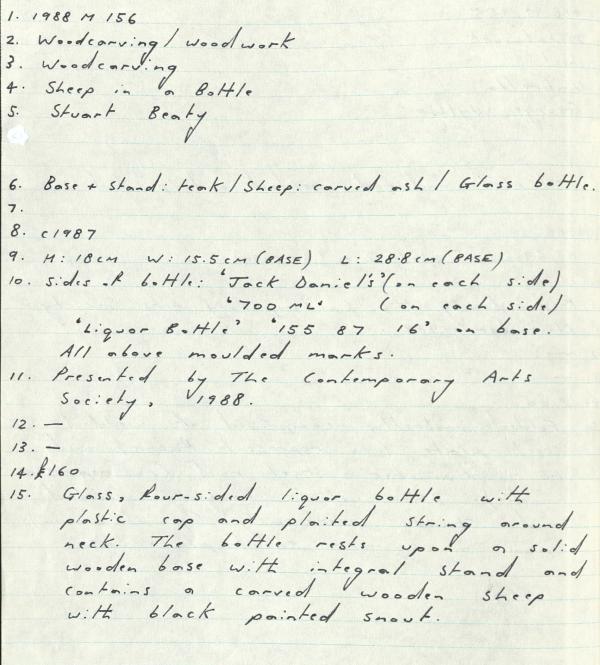 1. 1988 M 156
2. Woodcarving / woodwork
3. Woodcarving
4. Sheep in a Bottle
5. Stuart Beaty
6. Base + stand: teak / Sheep: carved ash / Glass bottle.
7.
8. c1987
9. H: 18cm W: 15.5cm (BASE) L: 28.8cm (BASE)
10. sides of bottle: 'Jack Daniel's' (on each side)
'700 ML' (on each side)
'Liquor Bottle' '155 87 16' on base.
All above moulded marks.
11. Presented by The Contemporary Arts
Society, 1988.
12. —
13. —
14. £160
15. Glass, four-sided liquor bottle with
plastic cap and plaited string around
neck. The bottle rests upon a solid
wooden base with integral stand and
contains a carved wooden sheep
with black painted snout.